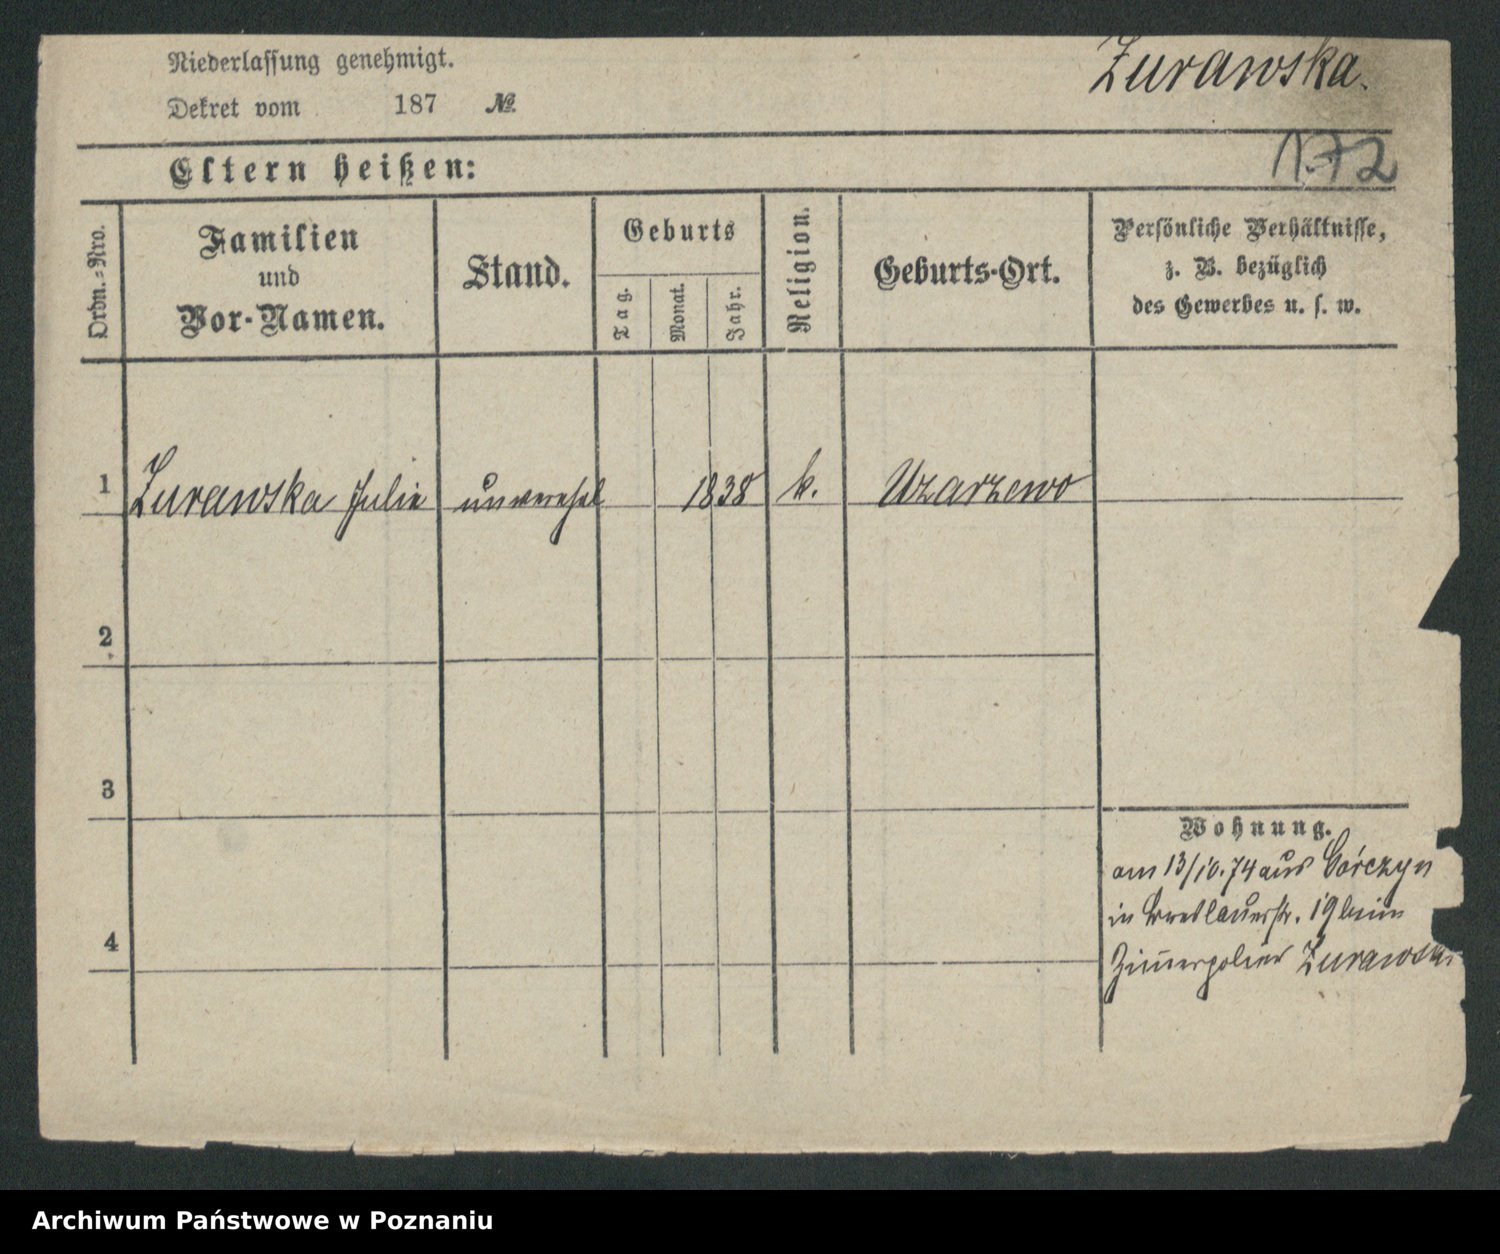 Niederlassung genehmigt.
Zurawska.
Dekret vom 187 №.
172
Eltern heißen:
Ordn.=Nro.
Familien
und
Vor-Namen.
Stand.
Geburts
Tag.
Monat.
Jahr.
Religion.
Geburts-Ort.
Persönliche Verhältnisse,
z. B. bezüglich
des Gewerbes u. s. w.
1 Zurawska Julie unverehel 1838 k. Uzarzewo
2
3
Wohnung.
am 13/10.74 aus Górczyn
in Breslauerstr. 19 beim
4
Zimerpolier Zurawski
Archiwum Państwowe w Poznaniu